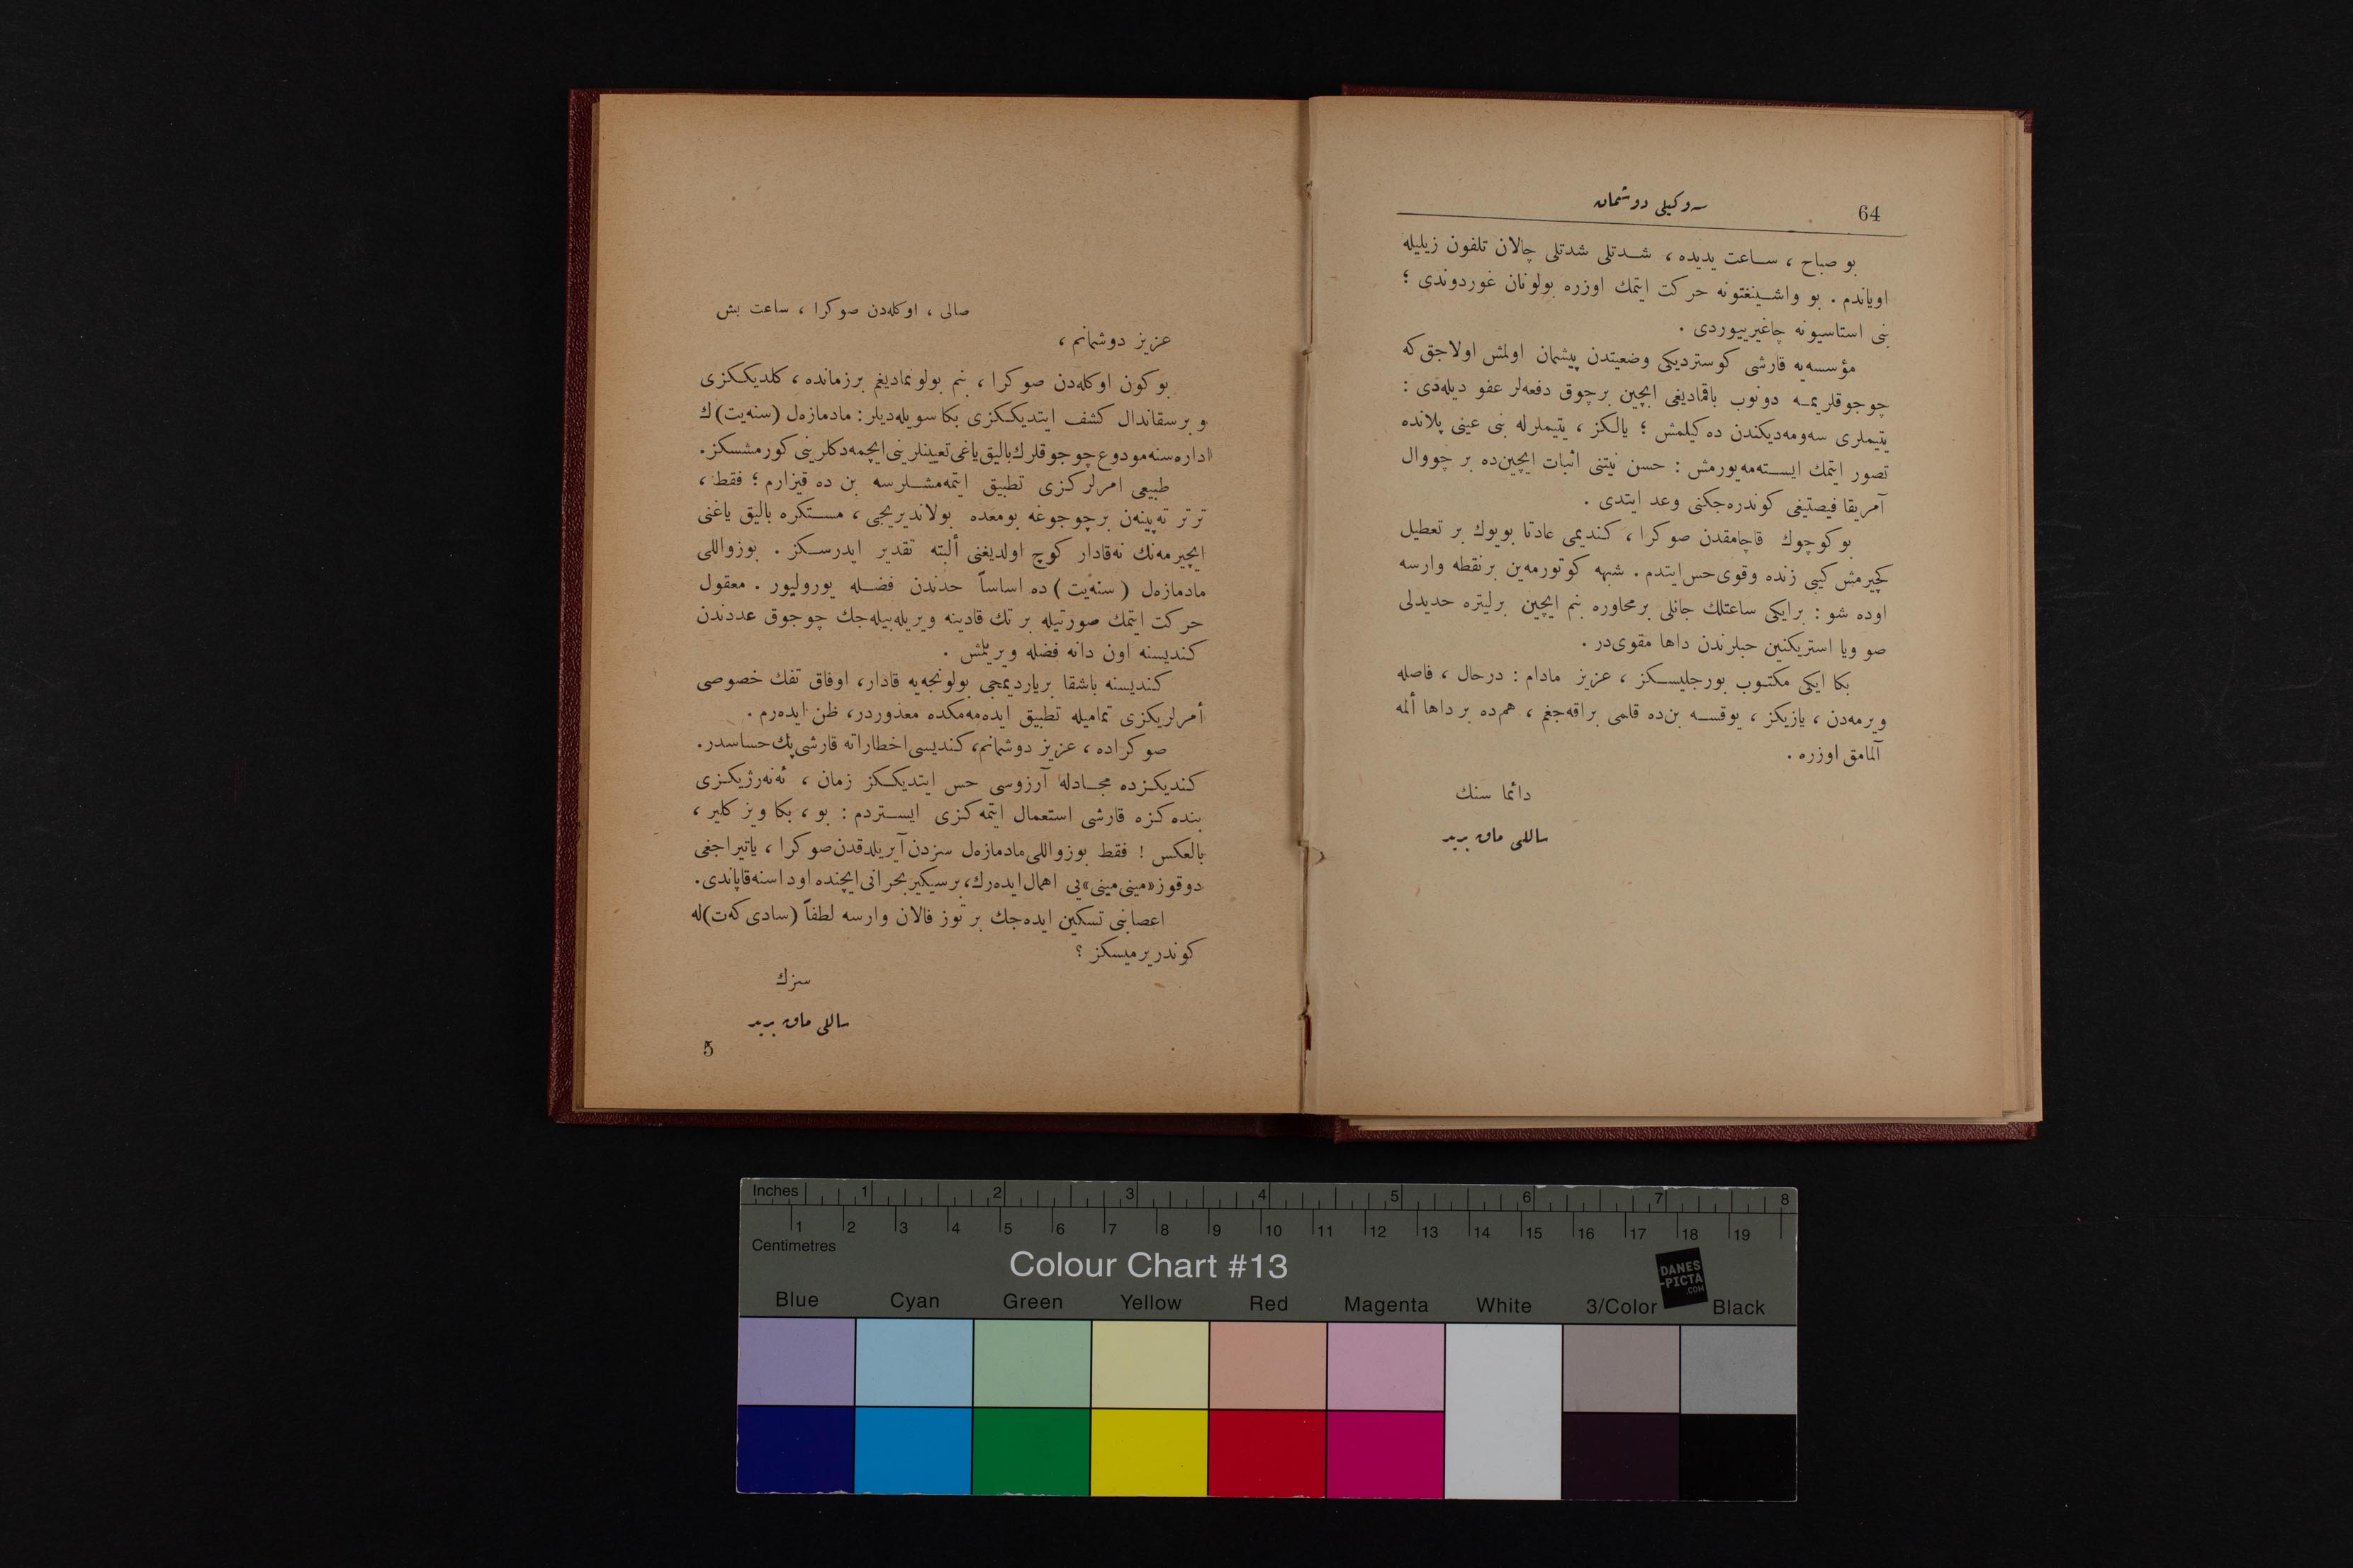 64
سوكیلی دوشمان
بو صباح ، ساعت یدیده ، شدتلی شدتلی چالان تلفون زیلیله
اویاندم . بو واشینغتونه حركت ایتمك اوزره بولونان غوردوندی ؛
بنی استاسیونه چاغیرییوردی .
مؤسسه‌یه قارشی كوستردیكی وضعیتدن پیشمان اولمش اولاجق كه
چوجوقلریمه دونوب باقمادیغی ایچین برچوق دفعه‌لر عفو دیله‌دی :
یتیملری سه‌ومه‌دیكندن ده كیلمش ؛ یالكز ، یتیملرله بنی عینی پلانده
تصور ایتمك ایسته‌مه‌یورمش : حسن نیتنی اثبات ایچین‌ده بر چووال
آمریقا فیصتیغی كوندره‌جكنی وعد ایتدی .
بو كوچوك قاچامقدن صوكرا ، كندیمی عادتا بویوك بر تعطیل
كچیرمش كیبی زنده وقوی حس ایتدم . شبهه كوتورمه‌ین برنقطه وارسه
اوده شو : برایكی ساعتلك جانلی برمحاوره بنم ایچین برلیتره حدیدلی
صو ویا استریكنین حبلرندن داها مقوی‌در .
بكا ایكی مكتوب بورجلیسكز ، عزیز مادام : درحال ، فاصله
ویرمه‌دن ، یازیكز ، یوقسه بن‌ده قلمی براقه‌جغم ، هم‌ده بر داها ألمه
آلمامق اوزره .
دائما سنك
ساللی ماق برید
صالی ، اوكله‌دن صوكرا ، ساعت بش
عزیز دوشمانم ،
بو كون اوكله‌دن صوكرا ، بنم بولونمادیغم برزمانده ، كلدیككزی
و برسقاندال كشف ایتدیككزی بكا سویله‌دیلر : مادمازه‌ل (سنه‌یت) ك
اداره‌سنه مودوع چوجوقلرك بالیق یاغی تعیینلرینی ایچمه‌دكلرینی كورمشسكز .
طبیعی امرلركزی تطبیق ایتمه‌مشلرسه بن ده قیزارم ؛ فقط ،
ترتر ته‌پینه‌ن برچوجوغه بومعده بولاندیریجی ، مستكره بالیق یاغنی
ایچیرمه‌نك نه‌قادار كوچ اولدیغنی ألبته تقدیر ایدرسكز . بوزواللی
مادمازه‌ل (سنه‌یت) ده اساساً حدندن فضله یورولیور . معقول
حركت ایتمك صورتیله بر تك قادینه ویریله‌بیله‌جك چوجوق عددندن
كندیسنه اون دانه فضله ویریلمش .
كندیسنه باشقا بریاردیمجی بولونجه‌یه قادار ، اوفاق تفك خصوصی
أمرلریكزی تمامیله تطبیق ایده‌مه‌مكده معذوردر ، ظن ایده‌رم .
صوكراده ، عزیز دوشمانم ، كندیسی اخطاراته قارشی پك حساسدر .
كندیكزده مجادله آرزوسی حس ایتدیككز زمان ، ئه‌نه‌رژیكزی
بنده كزه قارشی استعمال ایتمه‌كزی ایستردم : بو ، بكا ویز كلیر ،
بالعكس ! فقط بوزواللی مادمازه‌ل سزدن آیریلدقدن صوكرا ، یاتیراجغی
دوقوز «مینی مینی» یی اهمال ایده‌رك ، برسیكیر بحرانی ایچنده اوداسنه قاپاندی .
اعصابنی تسكین ایده‌جك بر توز فالان وارسه لطفاً (سادی كه‌ت) له
كوندریرمیسكز ؟
سزك
ساللی ماق برید
5
Inches 1 2 3 4 5 6 7 8
1 2 3 4 5 6 7 8 9 10 11 12 13 14 15 16 17 18 19
Centimetres
Colour Chart #13
DANES
-PICTA
.COM
Blue Cyan Green Yellow Red Magenta White 3/Color Black